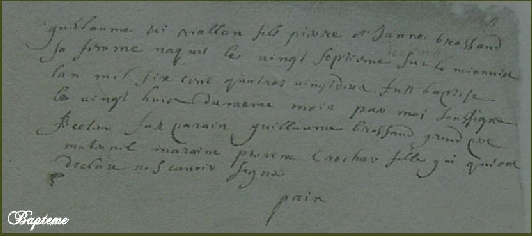 guillaume de mallan fils pierre et Janne brossand
sa femme naquit le vingt septieme sur le minuict
lan mil six cent quatres vingt deux fut baptise
le vingt huict du meme mois par moi soussigne
fut parain guillaume brossand grand pere
maternel maraine pierre fille qui
declare ne scavoir signe
pain
Bapteme